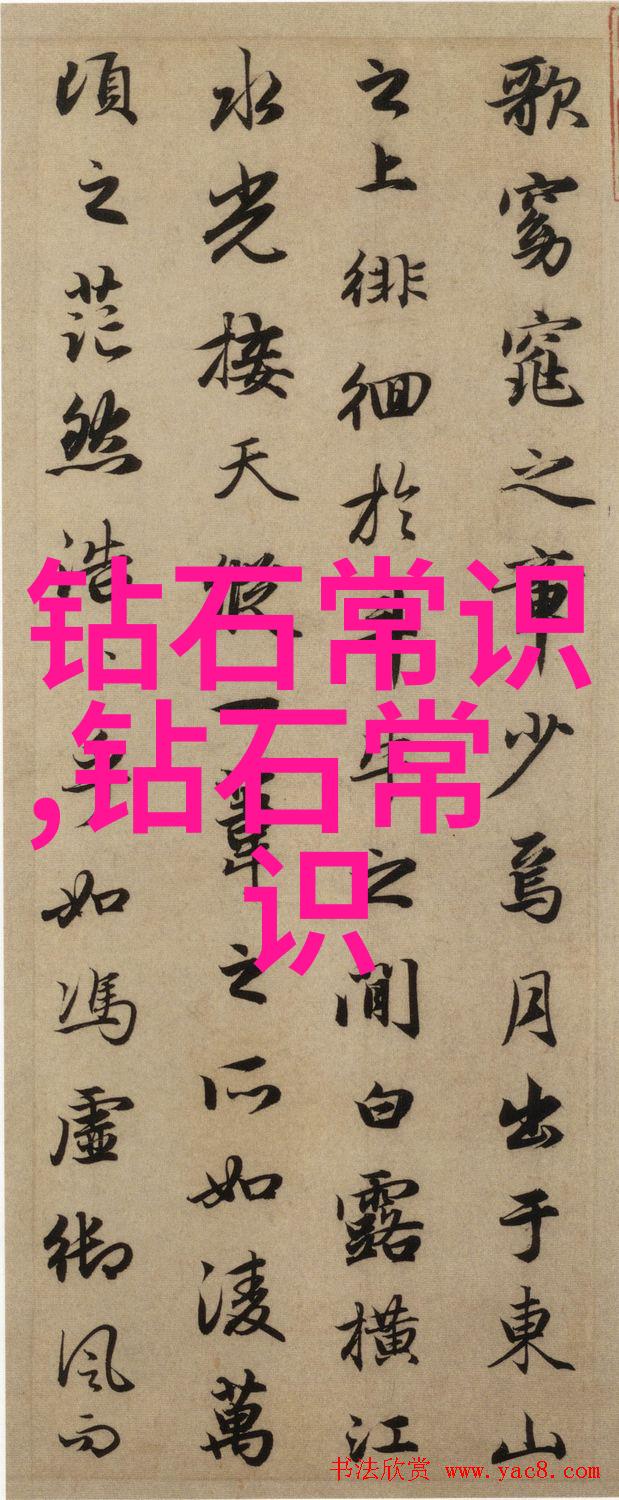 歌窈窕之章少焉月出于東山
之上徘徊於斗牛之間白露横江
水光接天縱一葦之所如凌萬
頃之茫然浩浩乎如馮虚御風而
钻石常识
,钻石常
识
书法欣赏 www.yac8.com